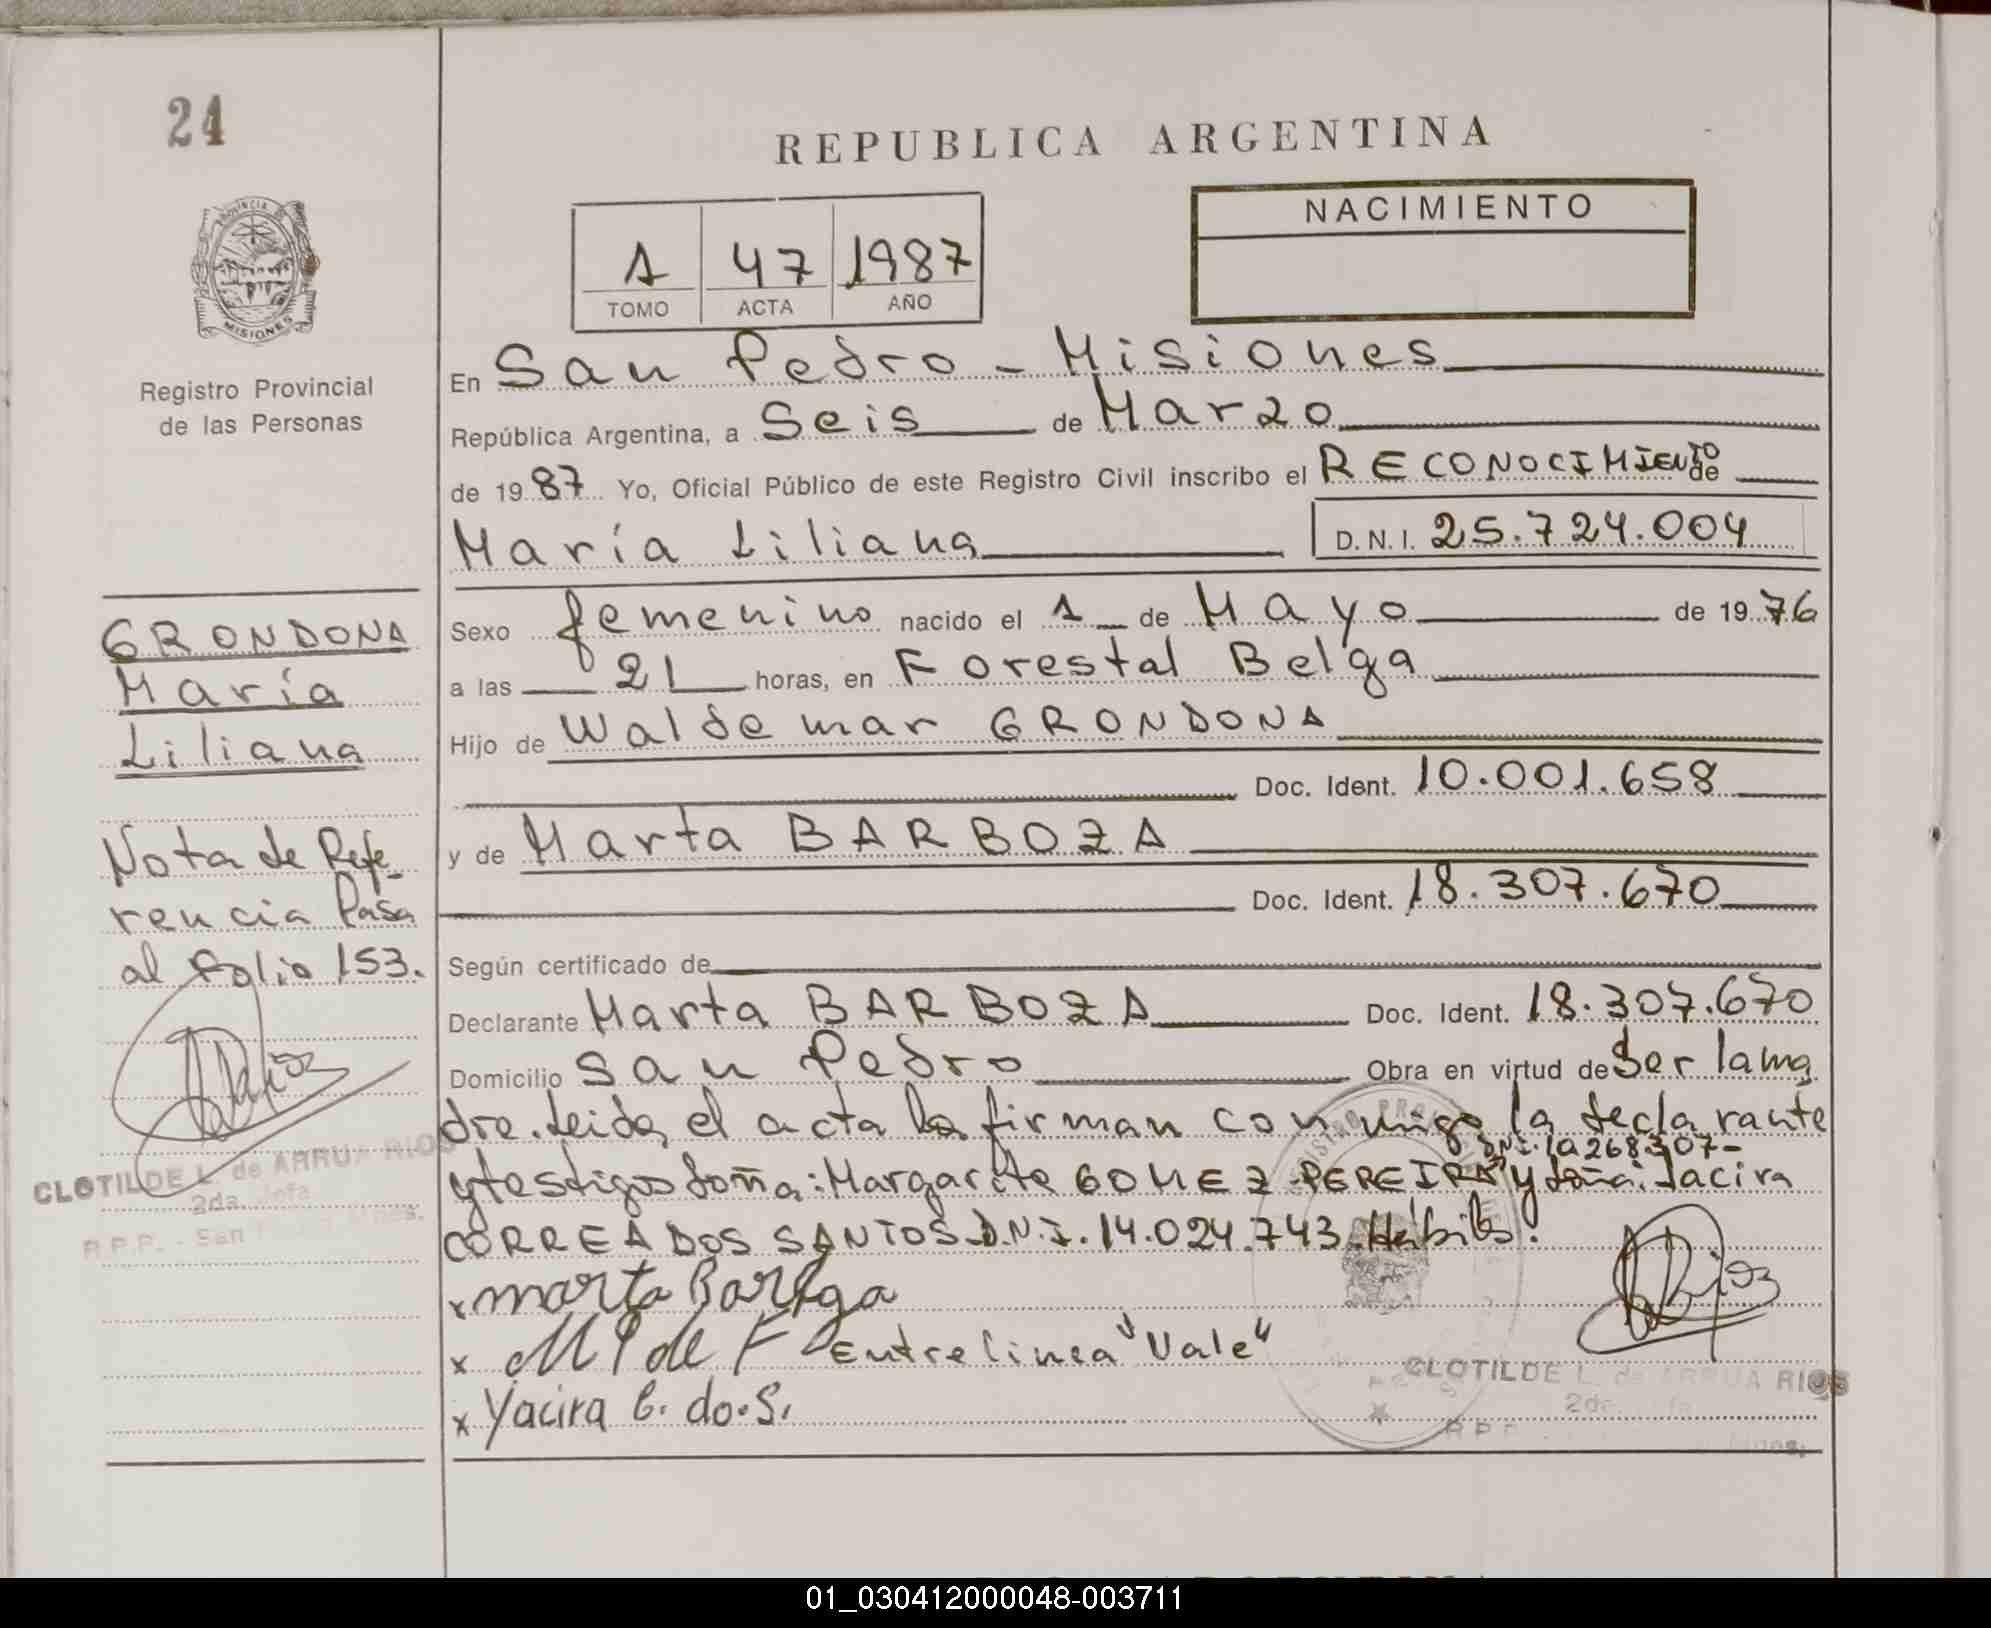 24
REPUBLICA ARGENTINA
PROVINCIA DE
MISIONES
Registro Provincial
de las Personas
1 47 1987
TOMO ACTA AÑO
NACIMIENTO
En San Pedro - Misiones
República Argentina, a Seis de Marzo
de 1987 Yo, Oficial Público de este Registro Civil inscribo el RECONOCIMIENTO de
María Liliana D.N.I. 25.724.004
Sexo femenino nacido el 1 de Mayo de 1976
a las 21 horas, en Forestal Belga
Hijo de Waldemar GRONDONA
Doc. Ident. 10.001.658
y de Marta BARBOZA
Doc. Ident. 18.307.670
Según certificado de
Declarante Marta BARBOZA Doc. Ident. 18.307.670
Domicilio San Pedro Obra en virtud de Ser la ma
dre. Leida el acta la firman conmigo la declarante
DNI. 1a268307-
y testigos doña: Margarita GOMEZ PEREIRA y doña: Jacira
CORREA DOS SANTOS D.N.I. 14.024.743. Hábiles.
x marta Barboza
x M P de F Entrelinea "Vale"
x Yacira C. do. S.
CLOTILDE L. de ARRUA RIOS
2da. Jefa
R.P.P.
GRONDONA
María
Liliana
Nota de Refe-
rencia Pasa
al folio 153.
CLOTILDE L. de ARRUA RIOS
2da. Jefa
R.P.P. - San
01_030412000048-003711